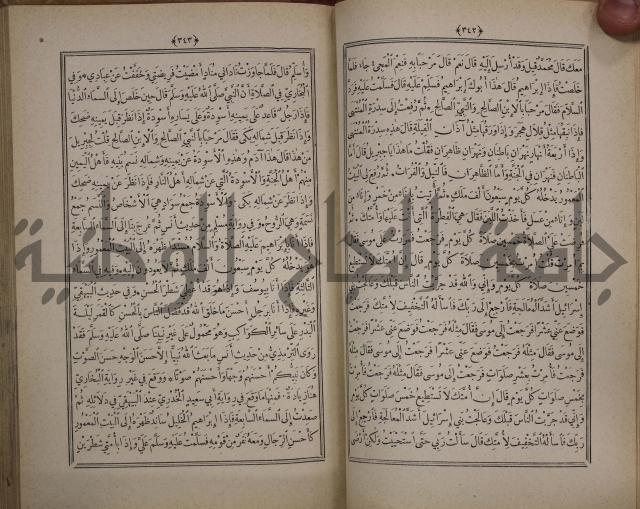 ﴿٣٤٢﴾
معك قال محمد قيل وقد أرسل إليه قال نعم قال مرحبا به فنعم المجيء جاء فلما
خلصت فإذا إبراهيم قال هذا أبوك إبراهيم فسلم عليه قال فسلمت عليه فرد
السلام فقال مرحبا بالابن الصالح والنبي الصالح ثم رفعت إلى سدرة المنتهى
فإذا نبقها مثل قلال هجر وإذا ورقها مثل آذان الفيلة قال هذه سدرة المنتهى
وإذا أربعة أنهار نهران باطنان ونهران ظاهران فقلت ما هذا يا جبريل قال أما
الباطنان فنهران في الجنة وأما الظاهران فالنيل والفرات ثم رفع لي البيت
المعمور يدخله كل يوم سبعون ألف ملك ثم أتيت بإناء من خمر وإناء من
لبن وإناء من عسل فأخذت اللبن فقال هي الفطرة التي أنت عليها وأمتك ثم
فرضت علي الصلاة خمسين صلاة كل يوم فرجعت فمررت على موسى فقال
خمسين صلاة كل يوم وإني والله قد جربت الناس قبلك وعالجت بني
إسرائيل أشد المعالجة فارجع إلى ربك فاسأله التخفيف لأمتك فرجعت
فوضع عني عشرا فرجعت إلى موسى فقال مثله فرجعت فوضع عني عشرا فرجعت
إلى موسى فقال مثله فرجعت فوضع عني عشرا فرجعت إلى موسى فقال مثله
فرجعت فأمرت بعشر صلوات فرجعت إلى موسى فقال مثله فرجعت فأمرت
بخمس صلوات كل يوم قال إن أمتك لا تستطيع خمس صلوات كل يوم
وإني قد جربت الناس قبلك وعالجت بني إسرائيل أشد المعالجة فارجع إلى
ربك فاسأله التخفيف لأمتك قال سألت ربي حتى استحييت ولكن أرضى
﴿٣٤٣﴾
وأسلم قال فلما جاوزت نادانى مناد أمضيت فريضتي وخففت عن عبادي وفي
البخاري في الصلاة أن النبي صلى الله عليه وسلم قال حين خلص إلى السماء الدنيا
فإذا رجل قاعد على يمينه أسودة وعلى يساره أسودة إذا نظر قبل يمينه ضحك
وإذا نظر قبل شماله بكى فقال مرحبا بالنبي الصالح والابن الصالح قلت لجبريل
من هذا قال هذا آدم وهذه الأسودة عن يمينه وشماله نسم بنيه فأهل اليمين
منهم أهل الجنة والأسودة التي عن شماله أهل النار فإذا نظر عن يمينه ضحك
وإذا نظر عن شماله بكى والأسودة جمع سواد هي الأشخاص والنسم جمع
نسمة وهي الروح وفي رواية مسلم من حديث أنس ثم عرج بنا إلى السماء السابعة
فإذا أنا بإبراهيم عليه الصلاة والسلام مسندا ظهره إلى البيت المعمور وإذا
هو يدخله كل يوم سبعون ألف ملك ثم لا يعودون إليه وفيه في السماء
الثالثة فإذا أنا بيوسف وإذا هو قد أعطي شطر الحسن وفي حديث البيهقي
وغيره فإذا أنا برجل أحسن ما خلق الله قد فضل الناس بالحسن كالقمر ليلة
البدر على سائر الكواكب وهو محمول على غير نبينا صلى الله عليه وسلم فقد
روى الترمذي من حديث أنس ما بعث الله نبيا إلا حسن الوجه حسن الصوت
وكان نبيكم أحسنهم وجها وأحسنهم صوتا ووقع في غير رواية البخاري
هنا زيادة فمنها ما وقع في رواية أبي سعيد الخدري عند البيهقي في دلائله ثم
صعدت إلى السماء السابعة فإذا إبراهيم الخليل ساند ظهره إلى البيت المعمور
كأحسن الرجال ومعه نفر من قومه فسلمت عليه وسلم علي وإذا بأمتي شطرين
جامعة النجاح الوطنية